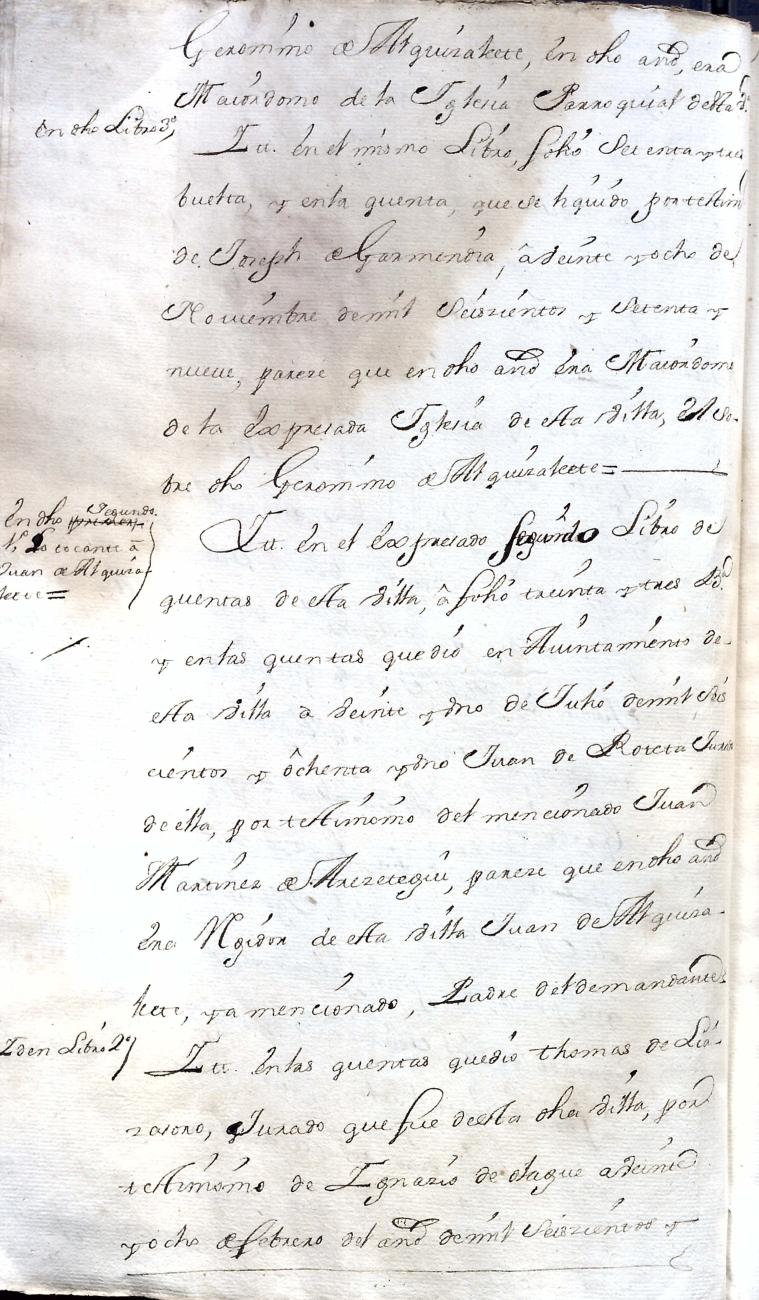 Geronimo de Alquizalete, en dho año, era
Maiordomo de la Iglesia Parroquial desta V.ª
en dho Libro 3º,
Itt. en el mismo Libro, folio Setenta y tres
buelta, y enla quenta, que se liquido por testim
de Joseph de Garmendia, â veinte y ocho de
Noviembre demil Seiszientos y Setenta y
nueve, pareze que en dho año era Maiordomo
de la expresada Iglesia de esta villa, el so-
bre dho Geronimo de Alquizalete=
en dho Segundo.
Lo tocante â
Juan de Alquiza-
lete=
Itt. en el expresado Segundo Libro de
quentas de esta villa, â folio treinta y tres B.ª
y enlas quentas que dió en Aiuntamiento de-
esta villa a veinte y vno de Julio demil Seis
cientos y ôchenta y vno Juan de Roteta Jurado
de ella, por testimonio del mencionado Juan
Martinez de Arezetegui, pareze que en dho año
era Regidor de esta villa Juan de Alquiza-
lete, ya mencionado, Padre del demandante
Iden Libro 2º
Itt. enlas quentas quedió thomas de Liz-
razoro, Jurado que fue desta dha villa, por
testimonio de Ignazio de olague a veinte
y ocho de febrero del año demil Seiszientos y